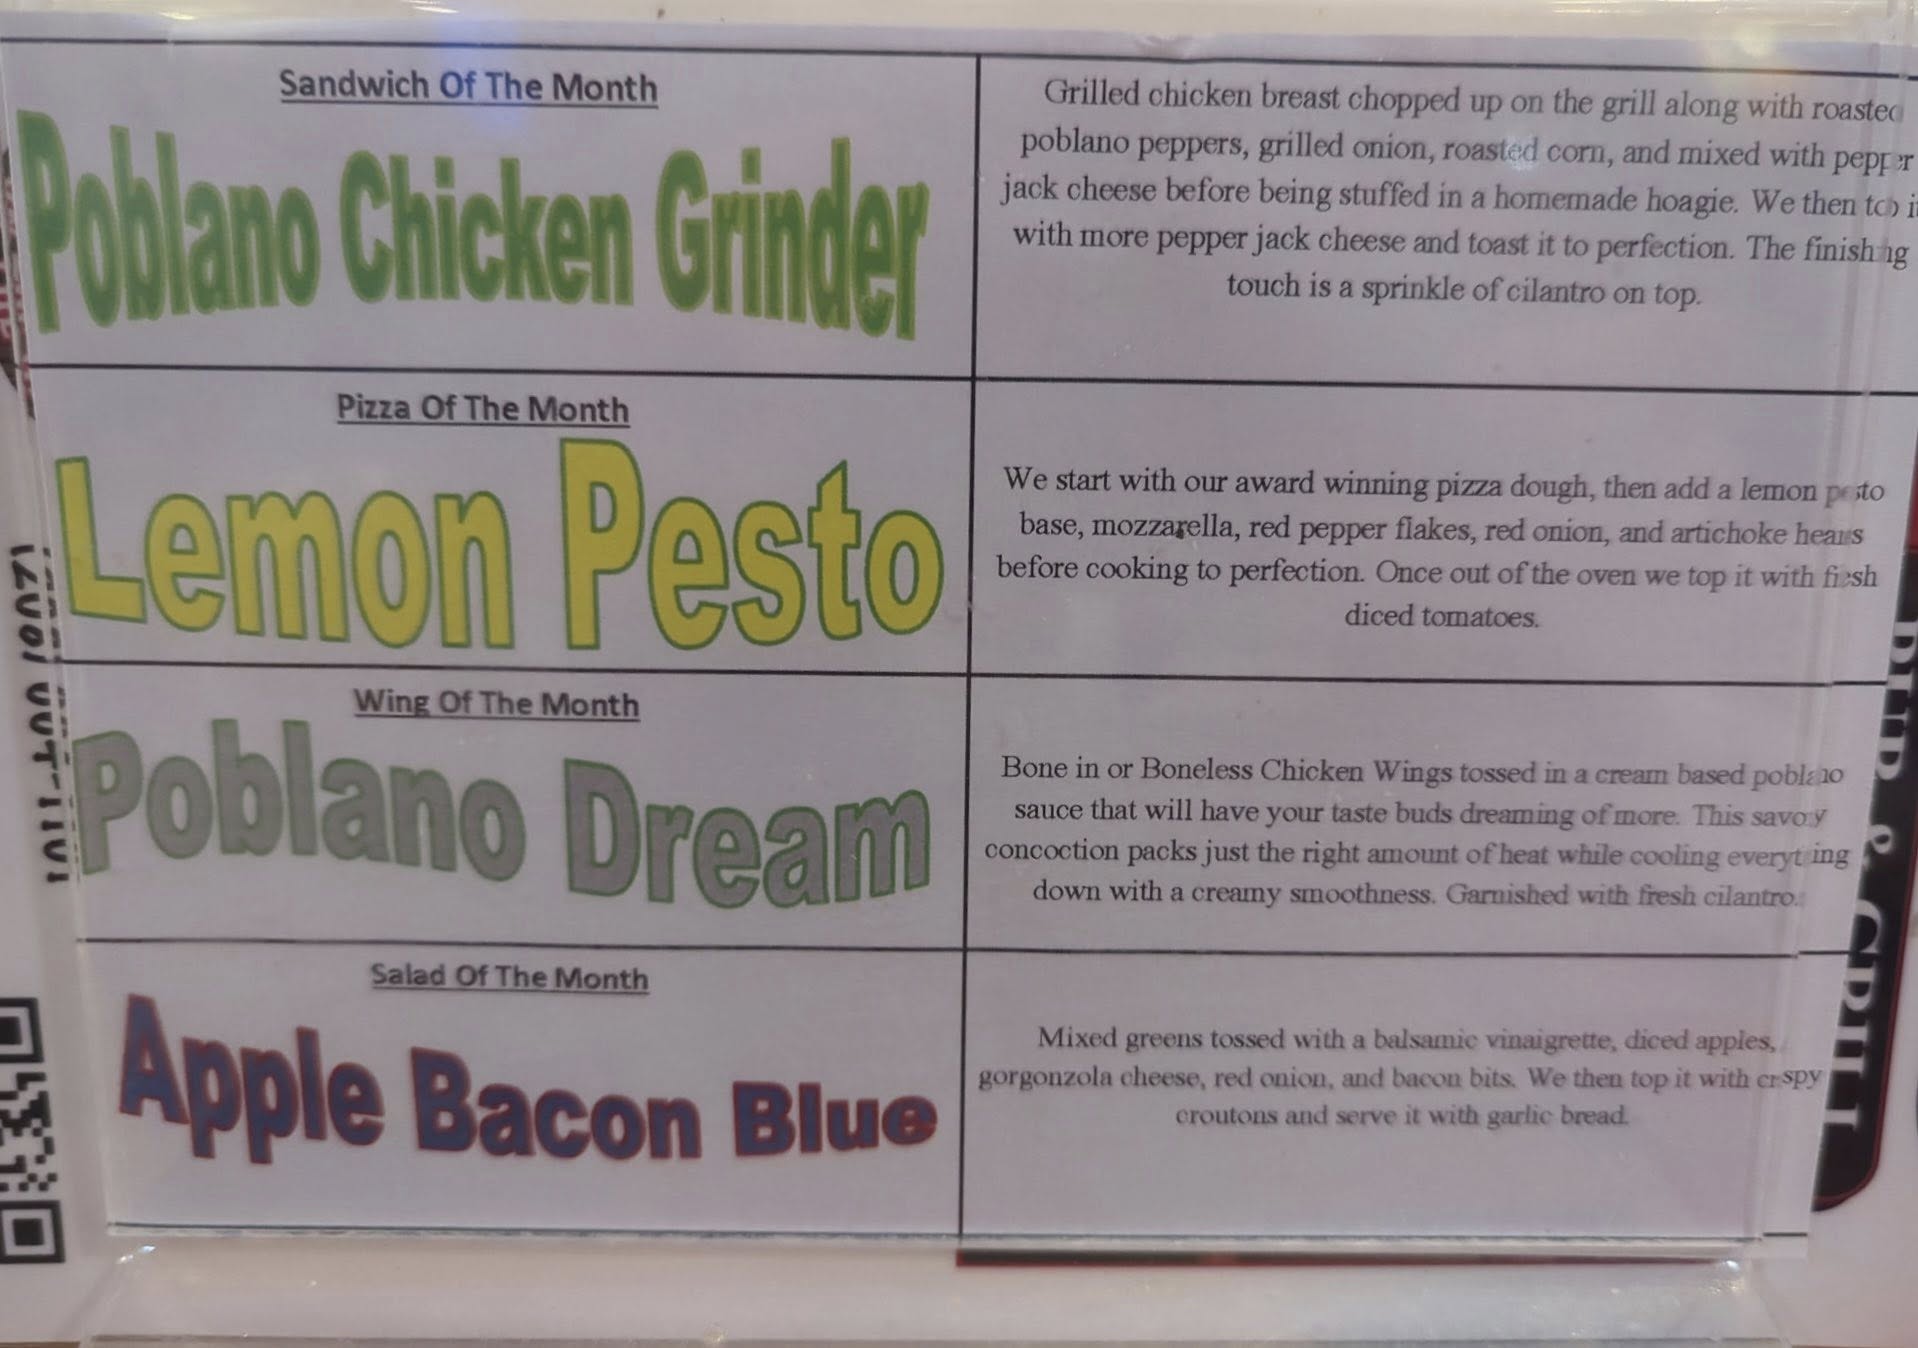 Sandwich Of The Month
Poblano Chicken Grinder
Grilled chicken breast chopped up on the grill along with roasted
poblano peppers, grilled onion, roasted corn, and mixed with pepper
jack cheese before being stuffed in a homemade hoagie. We then top i
with more pepper jack cheese and toast it to perfection. The finishing
touch is a sprinkle of cilantro on top.
Pizza Of The Month
Lemon Pesto
We start with our award winning pizza dough, then add a lemon pesto
base, mozzarella, red pepper flakes, red onion, and artichoke hearts
before cooking to perfection. Once out of the oven we top it with fresh
diced tomatoes.
Wing Of The Month
Poblano Dream
Bone in or Boneless Chicken Wings tossed in a cream based poblano
sauce that will have your taste buds dreaming of more. This savory
concoction packs just the right amount of heat while cooling everything
down with a creamy smoothness. Garnished with fresh cilantro.
Salad Of The Month
Apple Bacon Blue
Mixed greens tossed with a balsamic vinaigrette, diced apples,
gorgonzola cheese, red onion, and bacon bits. We then top it with crispy
croutons and serve it with garlic bread.